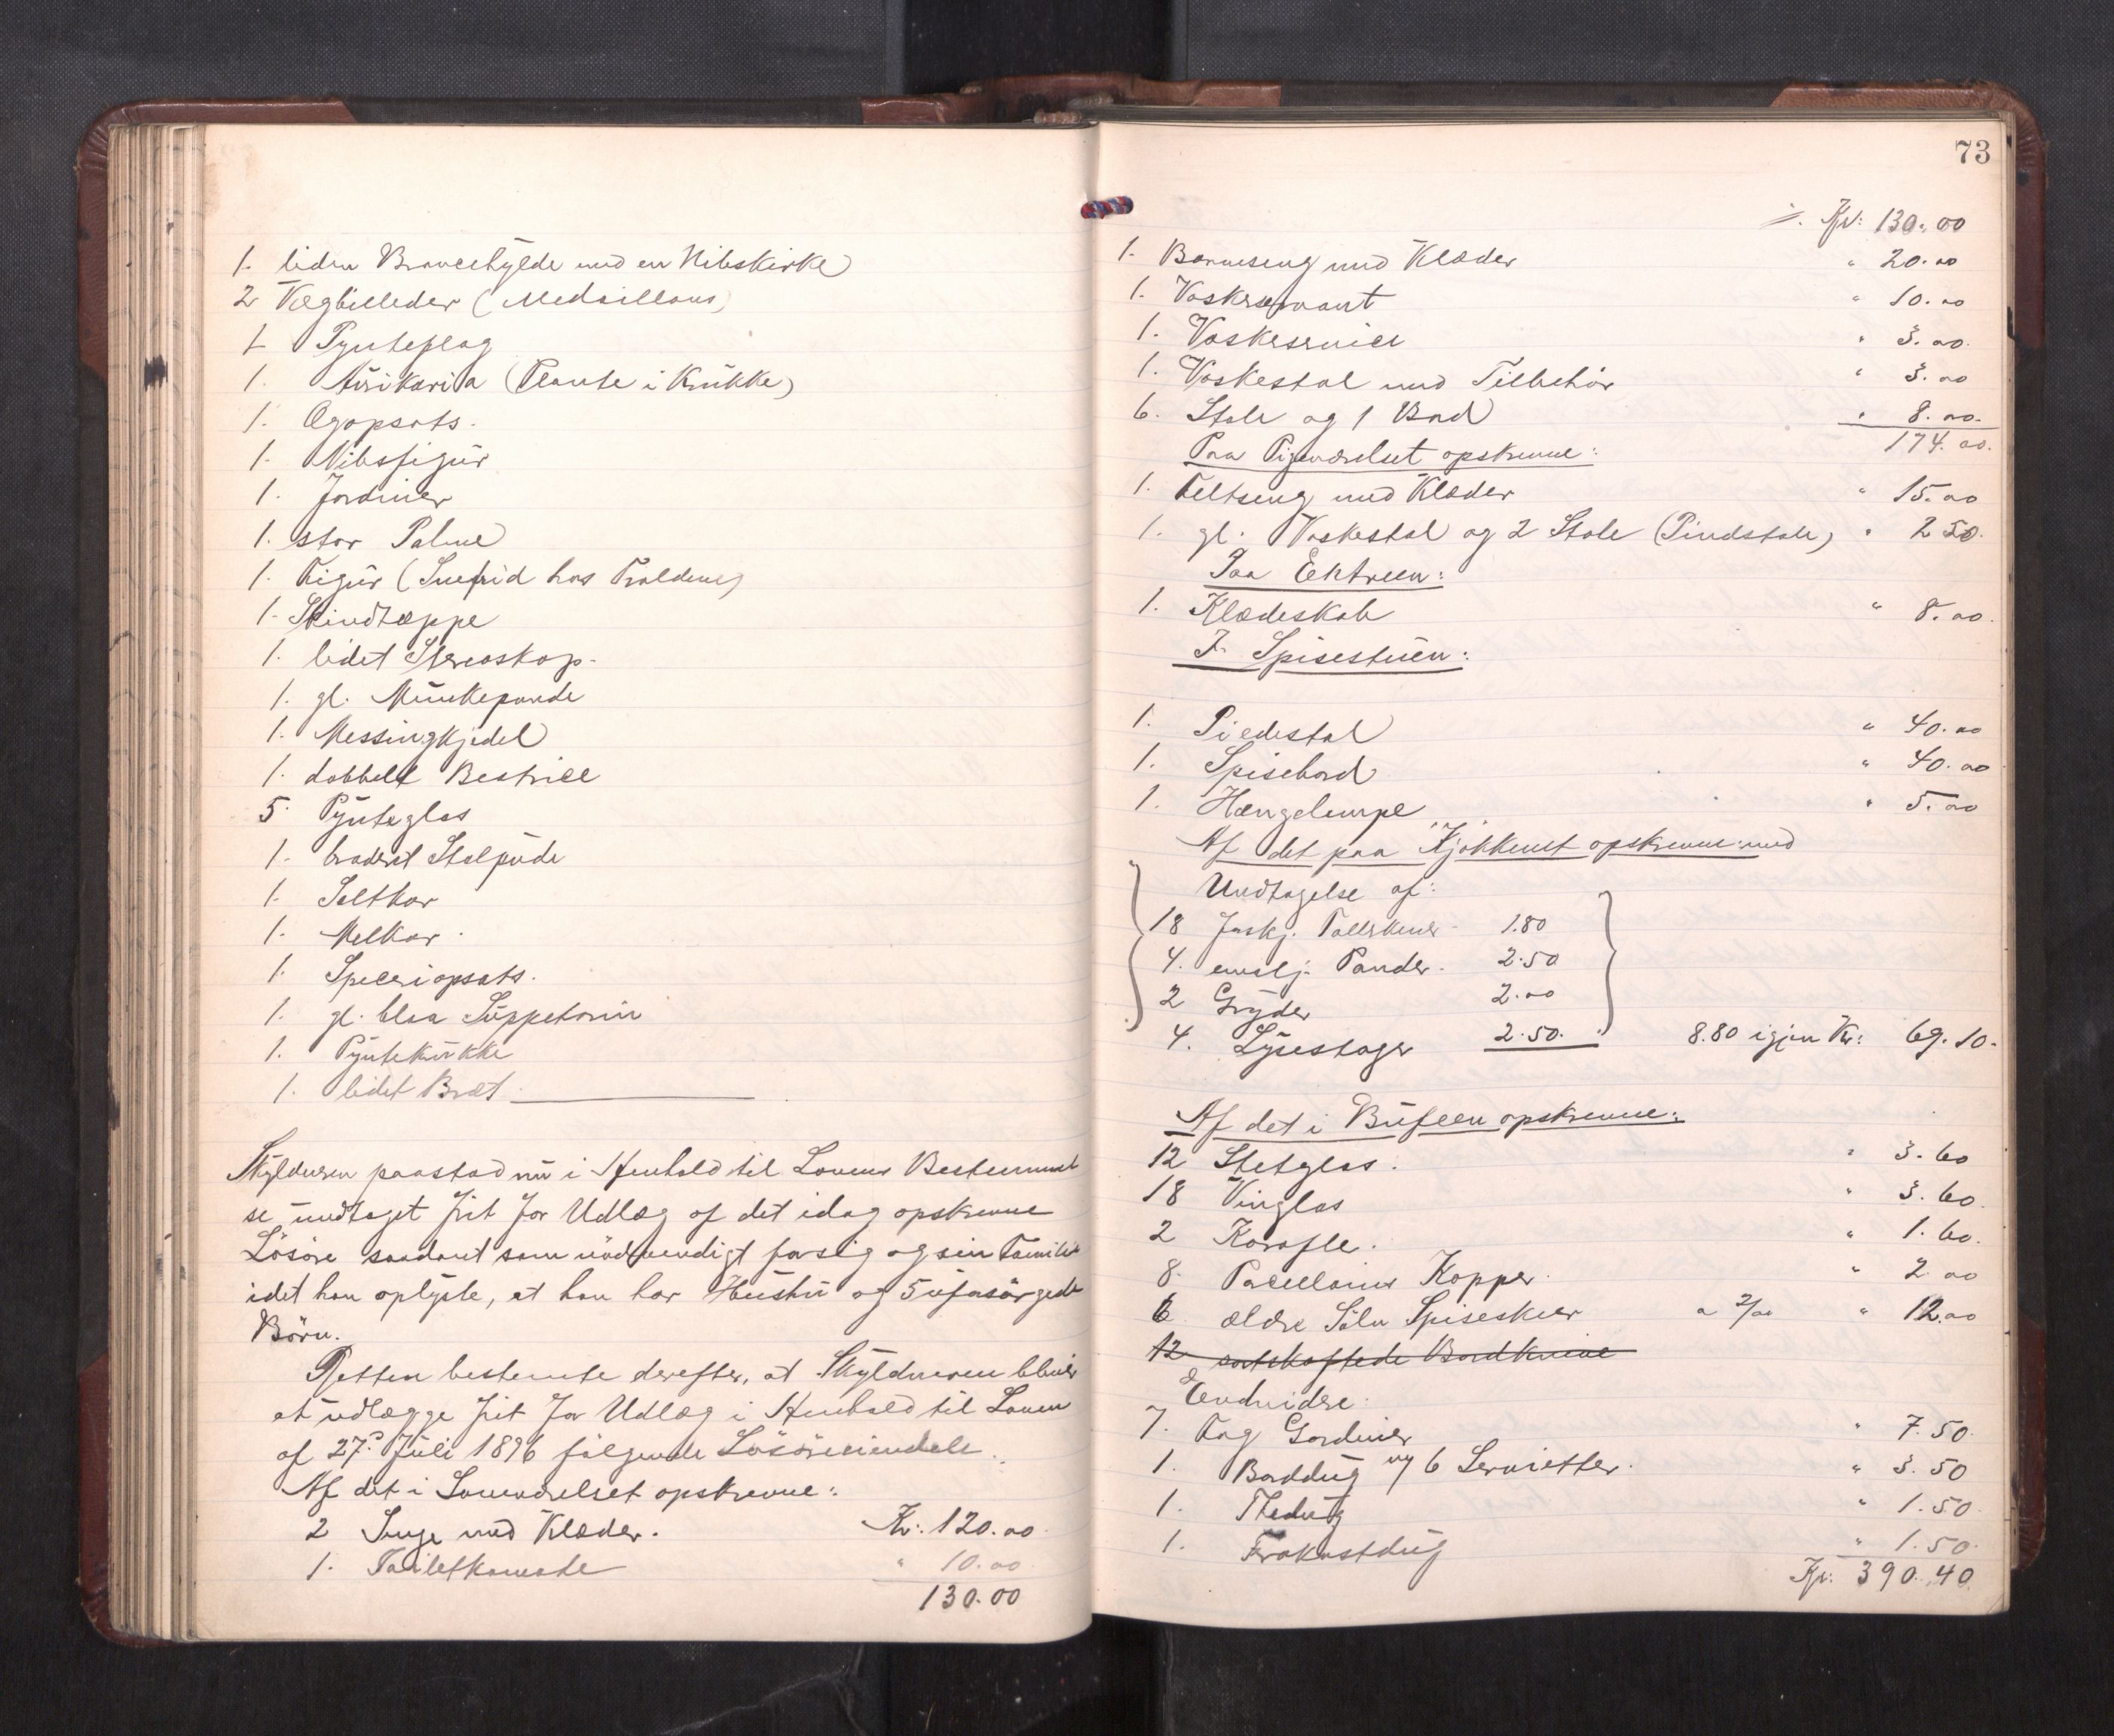 1. liden Broncehylde med en Nibskirke
2 Vægbilleder (Medaillons)
1 Pynteflag
1. Aurikaria (Plante i Krukke)
1. Ægopsats.
1. Nibsfigur
1. Jardinier
1. stor Palme
1. Figur (Snefrid hos Troldene)
1. Skindtæppe
1. lidet Stereoskop.
1. gl. Munkepande
1. Messingkjedel
1. dobbelt Bestik
5 Pynteglas
1. broderet Stolpude
1. Saltkar
1. Melkar.
1. Speceriopsats.
1. gl. blaa Suppeterin
1. Pyntekrukke
1. lidet Bræt.
Skyldneren paastod nu i Henhold til Lovens Bestemmel
se undtaget frit for Udlæg af det idag opskrevne
Lösöre saadant som nödvendigt for sig og sin Familie
idet han oplyste, at han har Hustru og 5 uforsörgede
Börn.
Retten bestemte derefter, at Skyldneren bliver
at udlægge frit for Udlæg i Henhold til Loven
af 27. Juli 1896 fölgende Lösöreeiendele.
Af det i Soveværelset opskrevne:
2 Senge med Klæder. Kr: 120.00
1. Toiletkomode " 10.00
130.00
73
Kr: 130.00
1. Barneseng med Klæder " 20.00
1. Vaskeservant " 10.00
1. Vaskeservice " 3.00
1. Vaskestol med Tilbehör " 3.00
6. Stole og 1 Bord " 8.00.
174.00.
Paa Pigeværelset opskrevne:
1. Feltseng med Klæder " 15.00
1. gl. Vaskestol og 2 Stole (Pindstole) " 2 50.
Paa Entreen:
1. Klædeskab " 8.00.
I Spisestuen:
1. Piedestal " 40.00
1. Spisebord " 40.00
1. Hængelampe " 5.00
Af det paa Kjökkenet opskrevne med
Undtagelse af:
18 Tallerkener 1.80
4. emalj. Pander. 2.50
2 Gryder 2.00
4. Lysestager 2.50. 8.80 igjen Kr: 69.10.
Af det i Bufeen opskrevne:
12 Stetglas. " 3.60
18 Vinglas " 3.60
2 Karafle. " 1.60.
8. Pocellains Kopper. " 2 00
6 ældre Sölv Spiseskeer a 2/00 " 12.00
12 sortskaftede Bordknive
Endvidere:
7. Fag Gardiner " 7.50.
1. Borddug og 6 Servietter. " 3.50
1. Thedug " 1.50
1. Frokostdug " 1.50.
Kr: 390.40